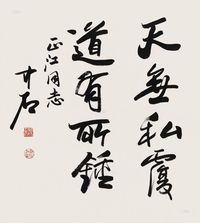 天無私覆
道有所鍾
正江同志
廿石